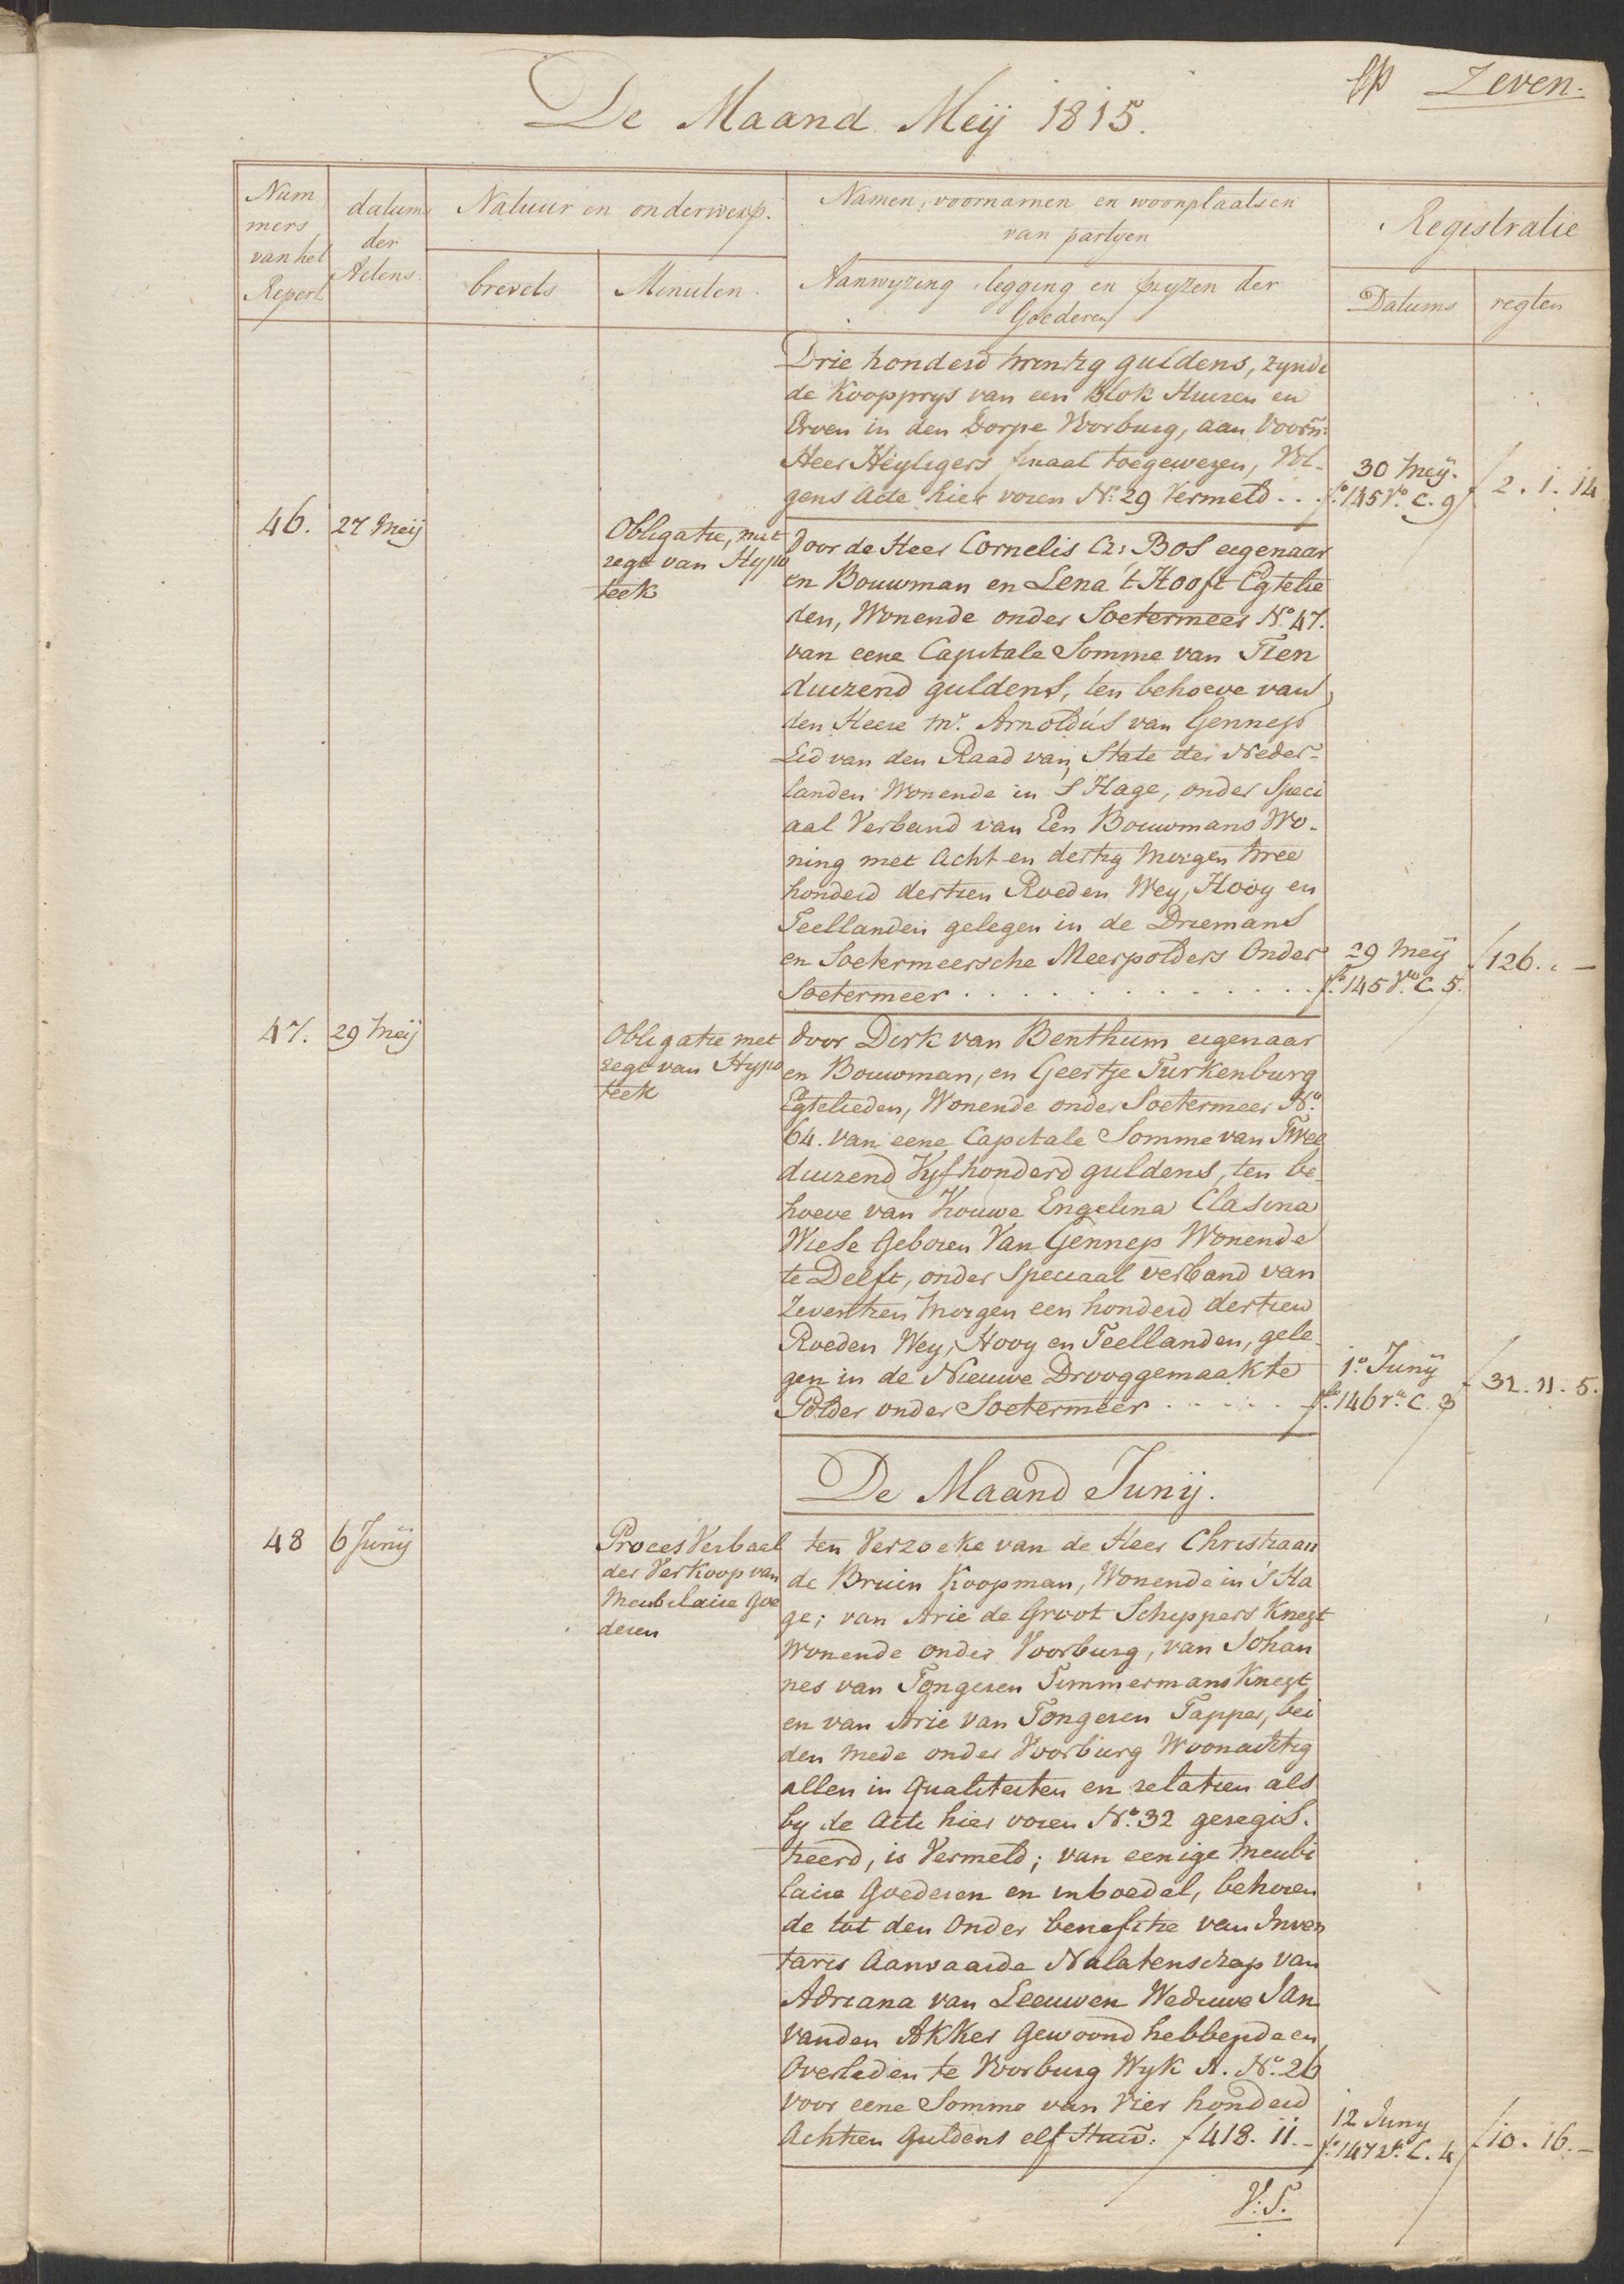 Zeven.
De Maand Meij 1815.
Num
mers
van het
Repert.
datums
der
Actens.
Natuur en onderwerp.
brevets
Minuten.
Namen, voornamen en woonplaatsen
van partyen
Aanwyzing, legging en pryzen der
Goederen
Registratie
Datums
regten
Drie honderd twintig guldens, zynde
de Koopprys van een Blok Huizen en
Erven in den Dorpe Voorburg, aan Voorn:
Heer Heyligers finaal toegewezen, Vol-
gens Acte hier voren No. 29 Vermeld . . .
30 Meij.
fo. 145 vo. C. 9
f 2. 1. 14
46.
27 Meij
Obligatie, met
regt van Hypo
teek
Door de Heer Cornelis Cs: Bos eigenaar
en Bouwman en Lena 't Hooft Egtelie
den, Wonende onder Soetermeer No. 47.
van eene Capitale Somme van Tien
duizend guldens, ten behoeve van
den Heere Mr. Arnoldus van Gennep
Lid van den Raad van State der Neder-
landen Wonende in S Hage, onder Speci
aal Verband van Een Bouwmans Wo-
ning met Acht en dertig Morgen twee
honderd dertien Roeden Wey, Hooy en
Teellanden gelegen in de Driemans
en Soetermeersche Meerpolders Onder
Soetermeer . . . . . . . . . . . . .
29 Meij
fo. 145 Vo. C. 5.
f 126. „ —
47.
29 Meij
Obligatie met
regt van Hypo
teek
door Dirk van Benthum eigenaar
en Bouwman, en Geertje Turkenburg
Egtelieden, Wonende onder Soetermeer No.
64. van eene Capitale Somme van Twee
duizend Vyf honderd guldens, ten be-
hoeve van Vrouwe Engelina Clasina
Wiese Geboren Van Gennep Wonende
te Delft, onder Speciaal verband van
Zeventien Morgen een honderd dertien
Roeden Wey, Hooy en Teellanden, gele-
gen in de Nieuwe Drooggemaakte
Polder onder Soetermeer . . . . .
1o. Junij
fo. 146 ro. C. 3
f 31. 11. 5.
De Maand Junij.
48
6 Junij
Proces Verbaal
der Verkoop van
Meubilaire Goe
deren
ten Verzoeke van de Heer Christiaan
de Bruin Koopman, Wonende in 'S Ha
ge; van Arie de Groot Schyppers Knegt
wonende onder Voorburg, van Johan
nes van Tongeren Timmermans Knegt
en van Arie van Tongeren Tapper, bei
den mede onder Voorburg Woonachtig
allen in Qualiteiten en relatien als
by de Acte hier voren No. 32 geregis-
treerd, is Vermeld; van eenige Meubi
laire Goederen en inboedel, behoren
de tot den Onder benefitie van Inven
taris Aanvaarde Nalatenschap van
Adriana van Leeuwen Weduwe Jan
vanden Akker Gewoond hebbende en
Overleden te Voorburg Wyk A. No. 26
voor eene Somme van Vier honderd
Achtien Guldens elf Stuiv: f 418. 11. –
12 Juny
fo. 147 vo. C. 4
f 10. 16. –
V: S.